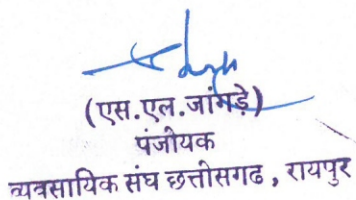 (एस.एल.जांगड़े)
पंजीयक
व्यवसायिक संघ छत्तीसगढ, रायपुर